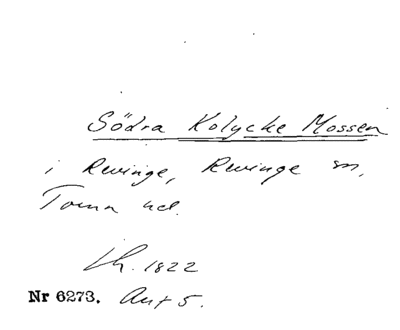 Södra Kolycke Mossen
i Revinge, Revinge sn,
Torna hd.
Lh. 1822
Nr 6273. Akt 5.